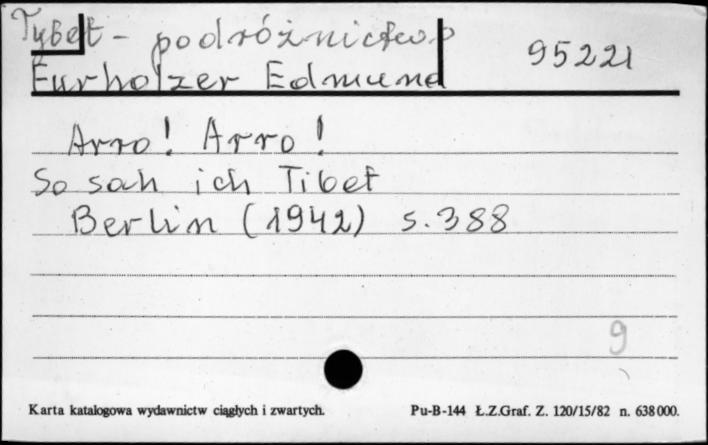 Tybet - podróżnictwo
95221
Furholzer Edmund
Arro! Arro!
So sah ich Tibet
Berlin (1942) s. 388
9
Karta katalogowa wydawnictw ciągłych i zwartych.
Pu-B-144 Ł.Z.Graf. Z. 120/15/82 n. 638000.